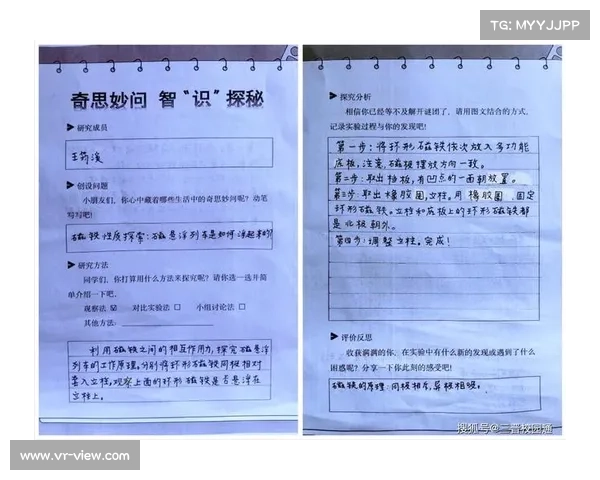 TG: MYYJJPP
奇思妙问 智“识”探秘
研究成员
王筠溪
创设问题
小朋友们，你心中藏着哪些生活中的奇思妙问呢？动笔
写写吧！
磁铁性质探索：磁悬浮列车是如何浮起来的？
研究方法
同学们，你打算用什么方法来探究呢？请你选一选并简
单介绍一下吧。
观察法 对比实验法 小组讨论法
其他方法：
利用磁铁之间的相互作用力，探究磁悬浮
列车的工作原理。分别将环形磁铁同极相对
套入立柱，观察上面的环形磁铁是否悬浮在
立柱上。
探究分析
相信你已经等不及解开谜团了，请用图文结合的方式，
记录实验过程与你的发现吧！
第一步：将环形磁铁依次放入多功能
底板，注意，磁极摆放方向一致。
第二步：取出挡板，有凹点的一面朝放置。
第三步：取出橡胶圈，立柱，用橡胶圈固定
环形磁铁。立柱和底板上的环形磁铁都
是北极朝外。
第四步：调整立柱。完成！
评价反思
收获满满的你，在实验中有什么新的发现或遇到了什么
困惑呢？分享一下你此刻的感受吧！
磁铁的原理：同极相斥，异极相吸。
搜狐号@二普校园通
www.vr-view.com